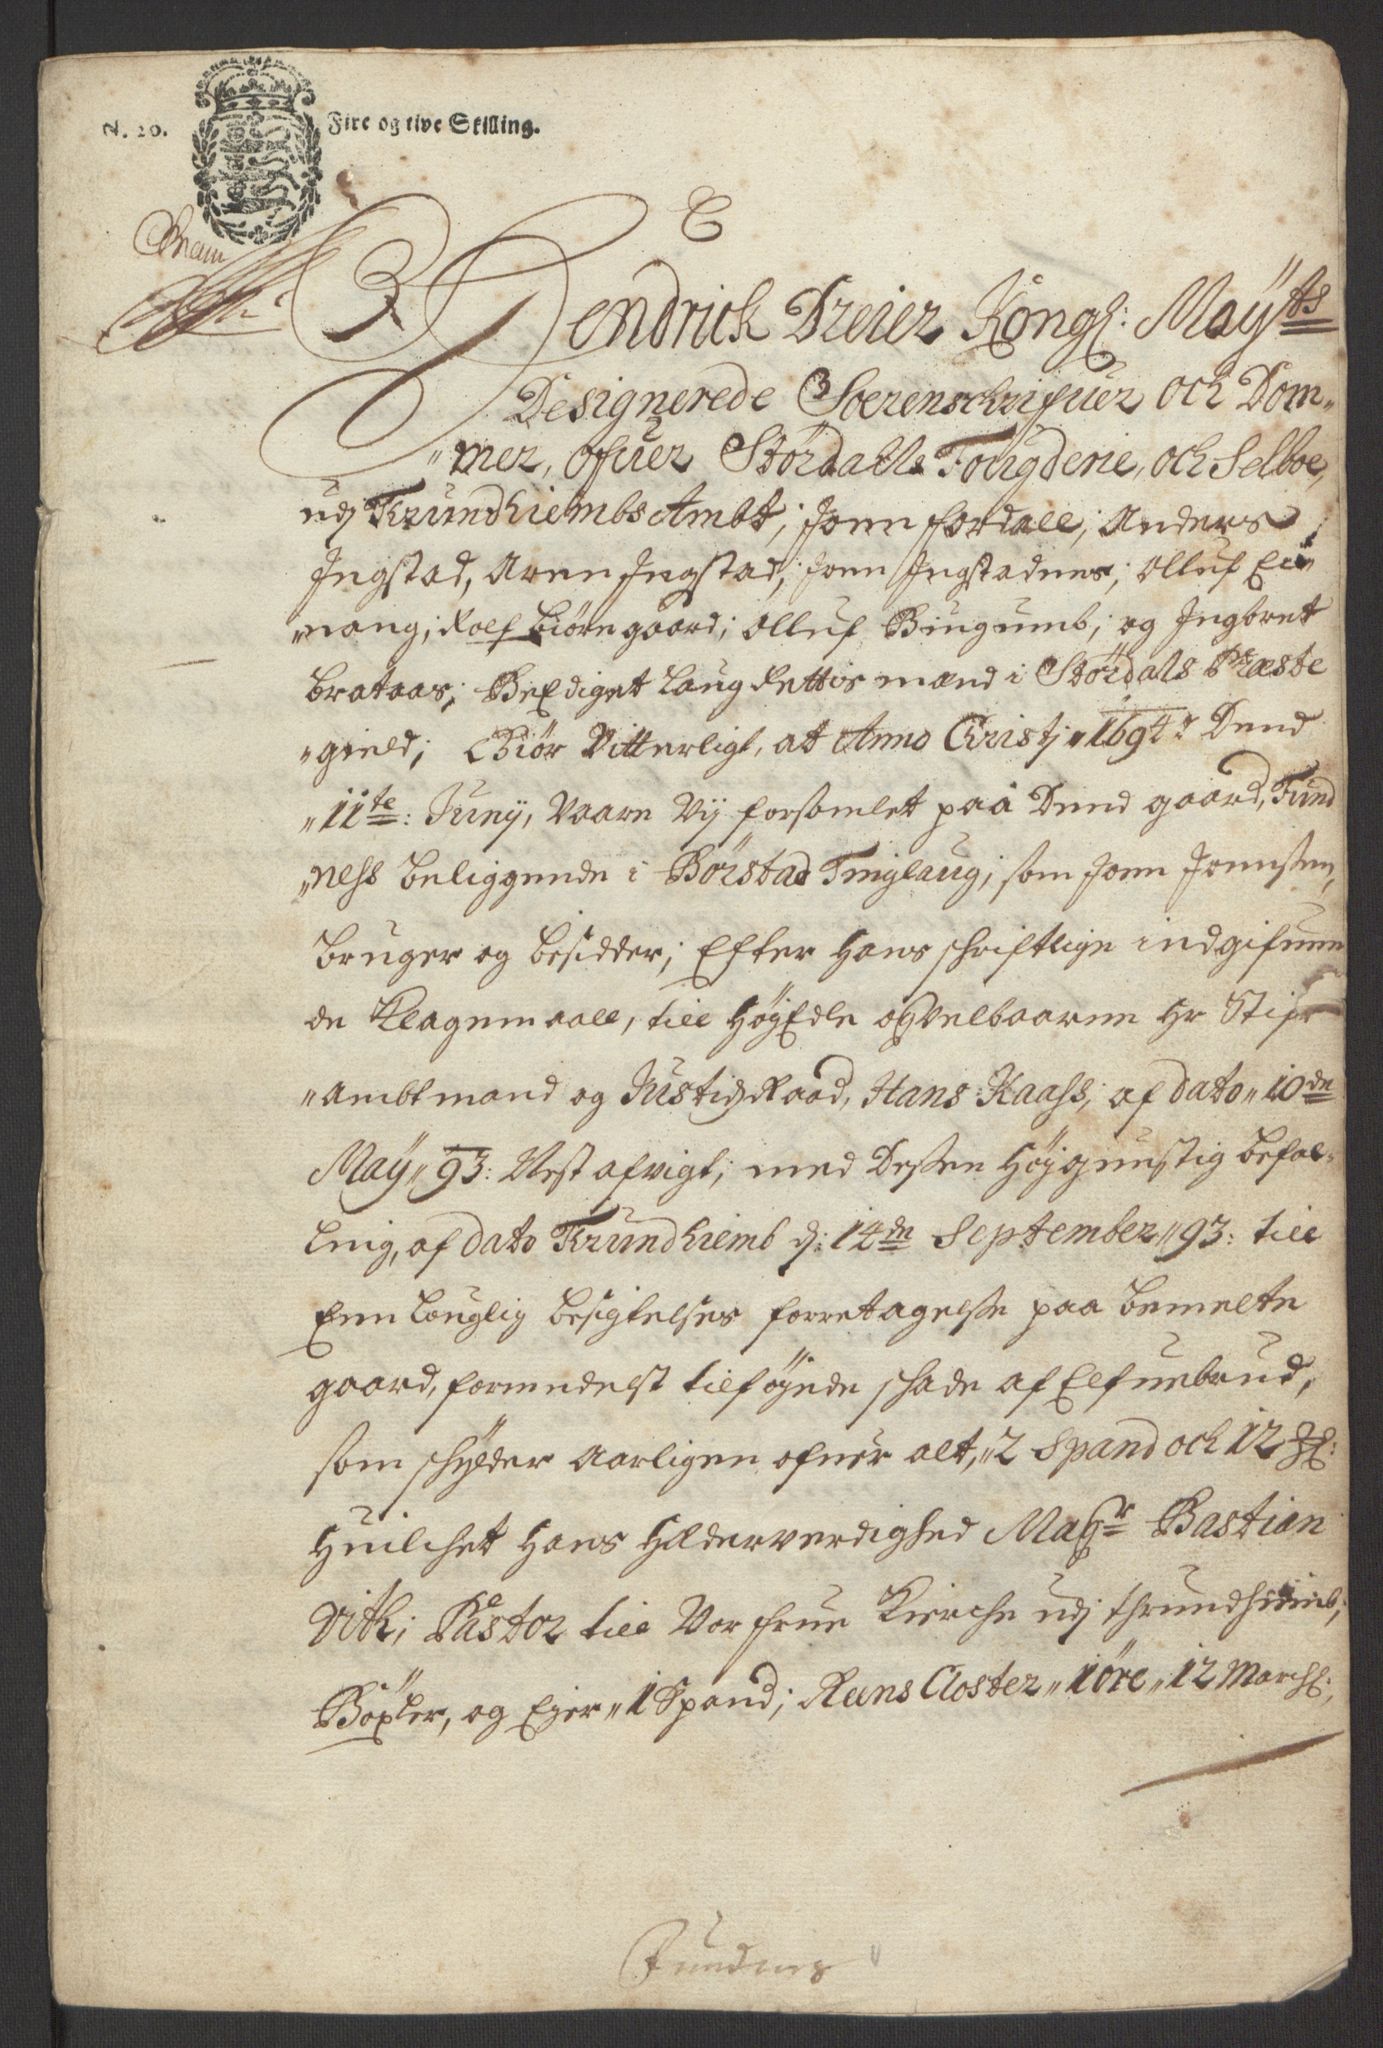 N. 20. Fire og tive Skilling.
E
Hendrick Dreier Kongl: Maÿts
Designerede Soerenschrifuer och Dom„
„mer, ofuer Størdalls Fougderie, och Selboe,
udj Trundhiembs Ambt; Jonn fordall; Anders
Ingstad, Aren Ingstad; Jonn Ingstadnes; Olluf Ei„
„nang; Rolf biørngaard; Olluf Bingumb; og Ingbret
brataas; Beediget Laug Rettis mænd i Størdals Præste
„gield; Giør Vitterligt, at Anno Christj „1694„ Dend
„11te: Junÿ, Vaare Vÿ forsamlet paa Dend gaard, Fund
„ness beliggende i Børstad Tinglaug; som Jonn Jonnsen,
bruger og besidder; Efter hans schriftlige indgifuen
de Klagemaall, till HøyEdle og Velbaarne Hr Stift
„ambtmand og JustidzRaad, Hans Kaass; af dato „10de
Maÿ „93: Nest afvigt; med Dessen Høygunstig befal„
ling, af dato Trundhiemb d: 14de September „93: till
Een lauglig besigtelses forretagelse paa bemelte
gaard, formedelst tilføyede schade af Elfuebrud,
som schylder aarligen ofuer alt, „2 Spand och 12 ℔:
Huilchet Hans Hæderverdighed Magr Bastian
Vith; Pastor till Vor frue Kierche udj thrundhiemb;
Bøxler, og Eyer „1 Spand; Reens Closter „1 øre „12 Marchl:,
Fundnes